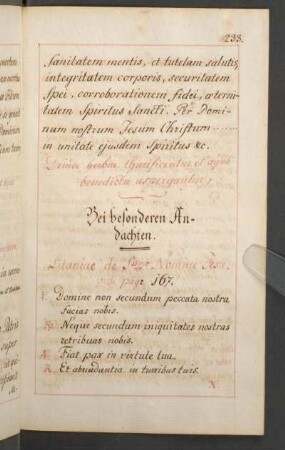 233.
Sanitatem mentis, et tutelam salutis,
integritatem corporis, securitatem
Spei, corroborationem fidei, aeterni-
tatem Spiritus Sancti. Per Domi-
num nostrum Jesum Christum
in unitate ejusdem Spiritus &c.
Deinde herbae thurificentur et aqua
benedicta asperguntur
Bei besonderen An-
dachten.
Litaniae de Nomine Jesu
pag: 167.
V. Domine non secundum peccata nostra
facias nobis.
R. Neque secundum iniquitates nostras
retribuas nobis.
V. Fiat pax in virtute tua.
R. Et abundantia in turribus tuis.